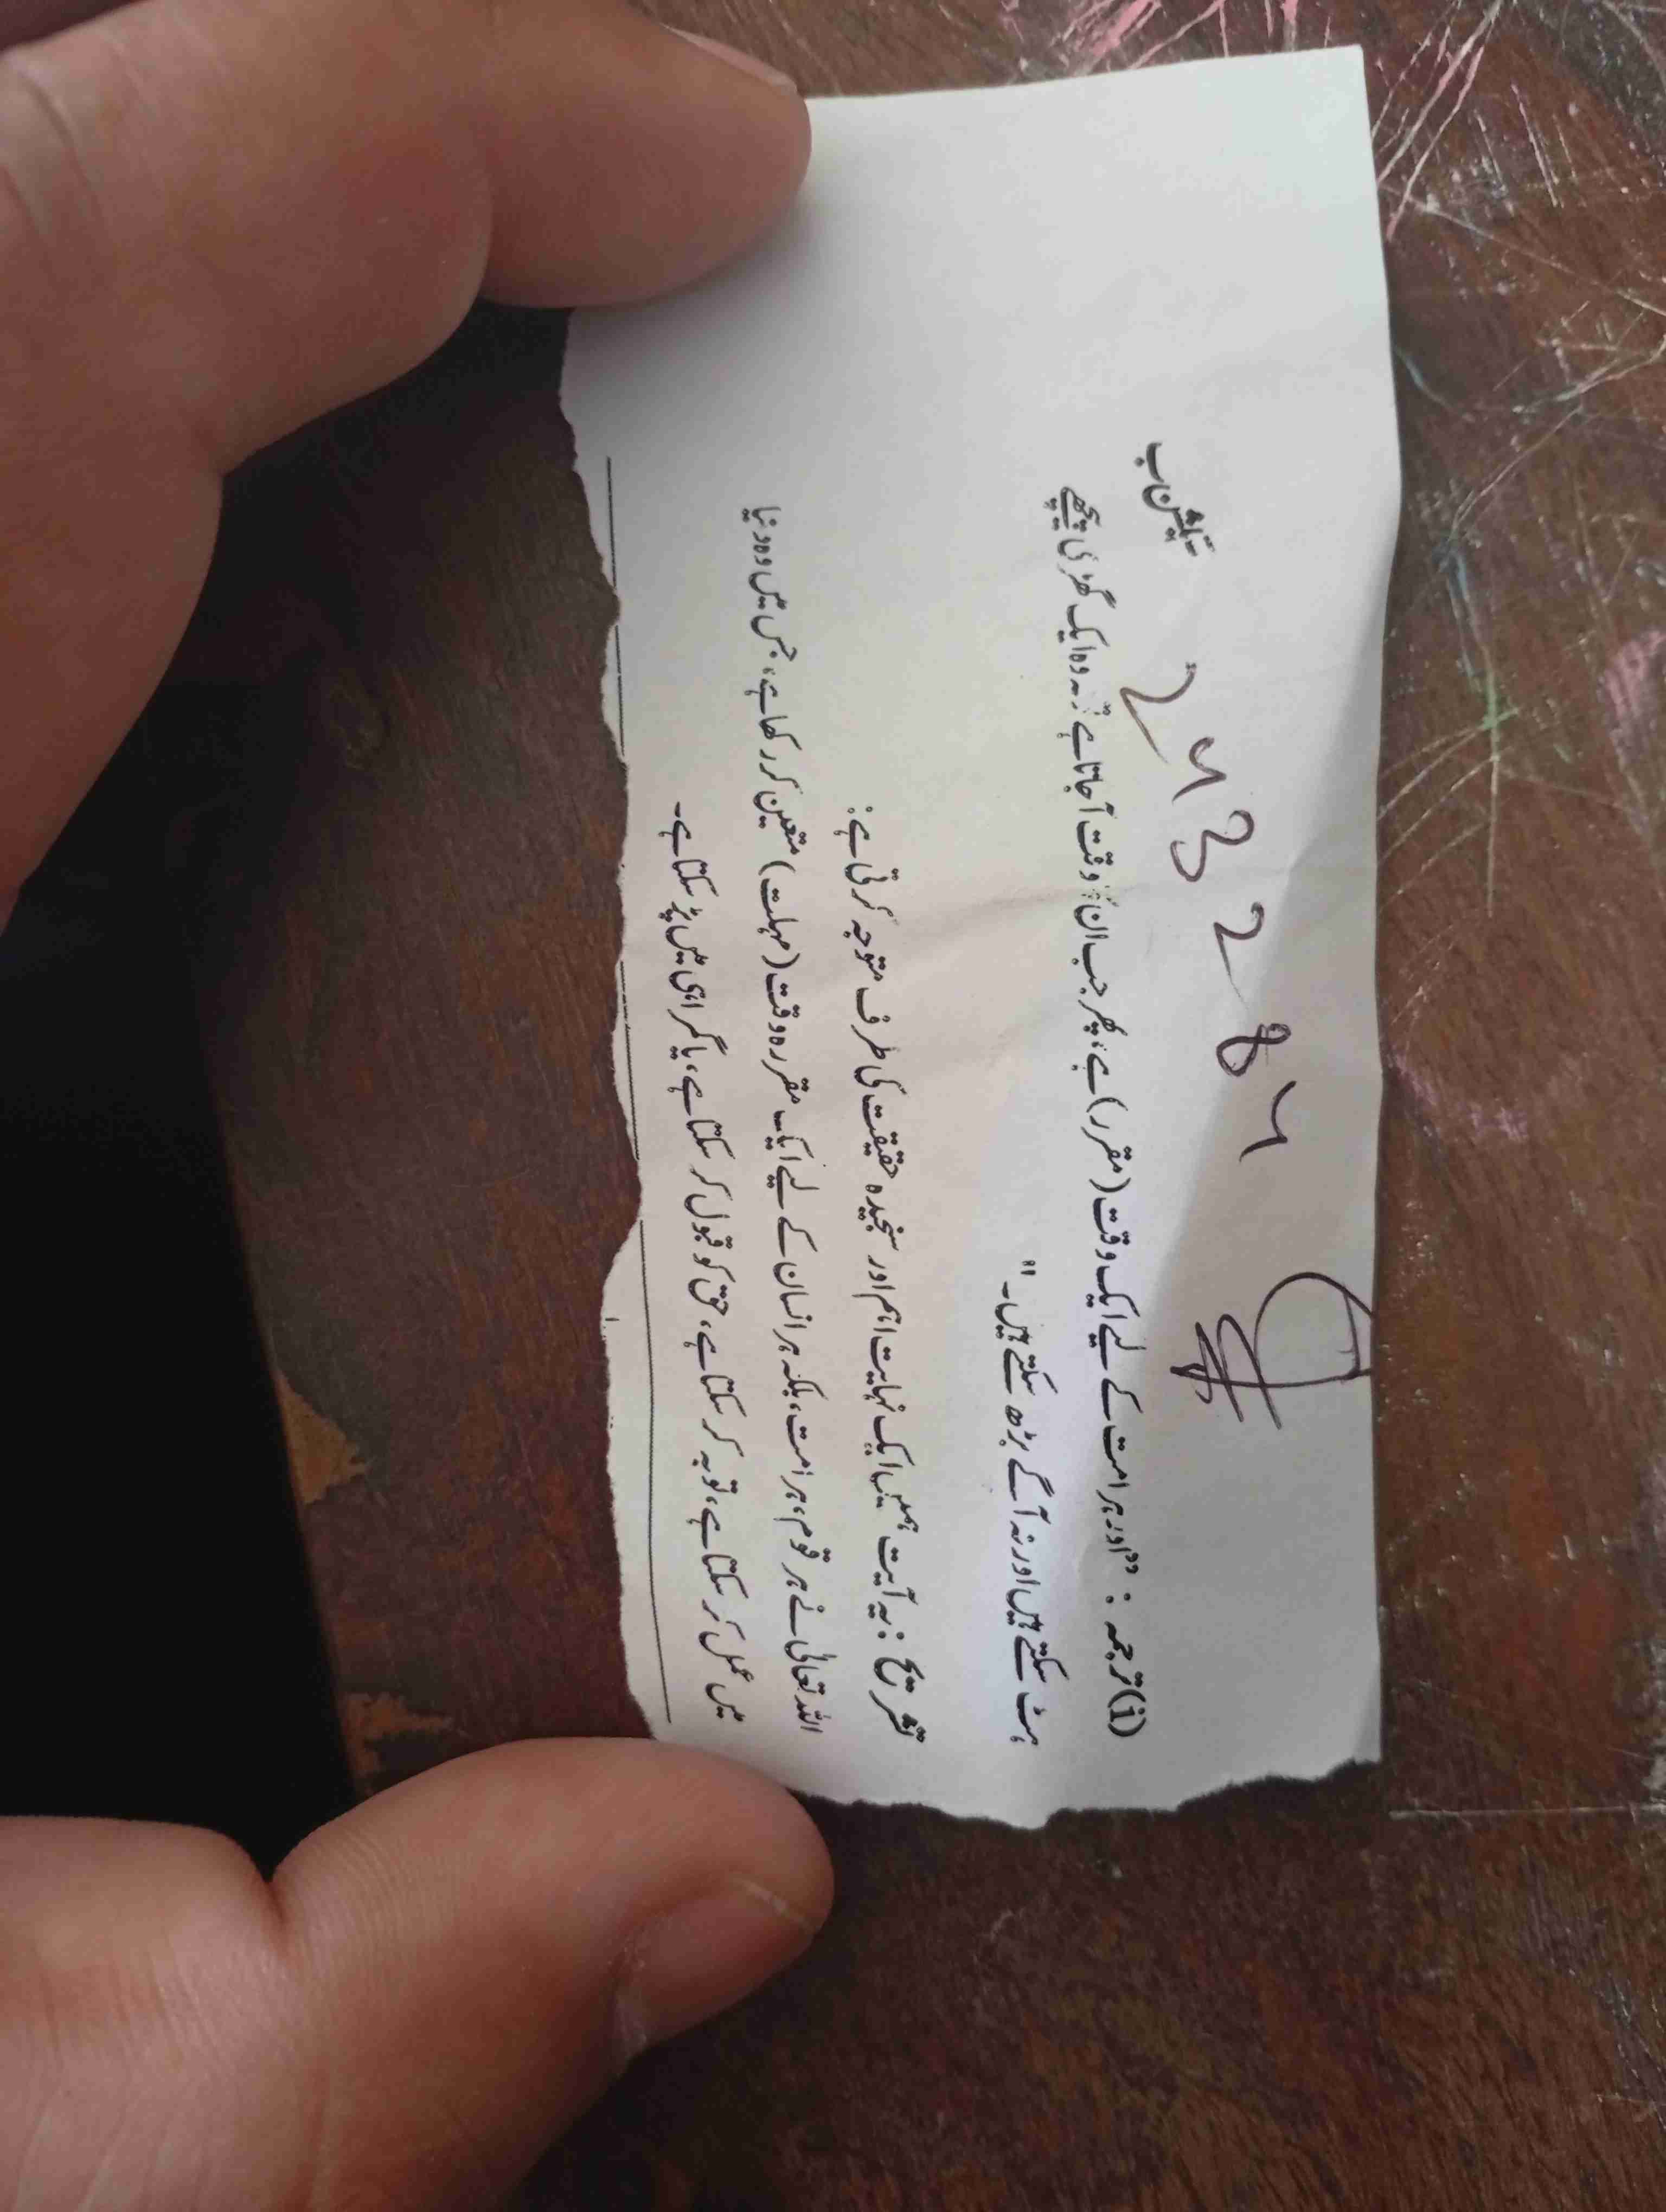 سیکشن ب
243284
(i) ترجمہ : "اور ہر امت کے لیے ایک وقت (مقرر) ہے، پھر جب ان کا وقت آجاتا ہے تو نہ وہ ایک گھڑی پیچھے
ہٹ سکتے ہیں اور نہ آگے بڑھ سکتے ہیں۔"
تشریح : یہ آیت ہمیں ایک نہایت اہم اور سنجیدہ حقیقت کی طرف متوجہ کرتی ہے:
اللہ تعالیٰ نے ہر قوم، ہر امت، بلکہ ہر انسان کے لیے ایک مقررہ وقت (مہلت) متعین کر رکھا ہے، جس میں وہ دنیا
میں عمل کر سکتا ہے، توبہ کر سکتا ہے، حق کو قبول کر سکتا ہے، یا گمراہی میں پڑ سکتا ہے۔